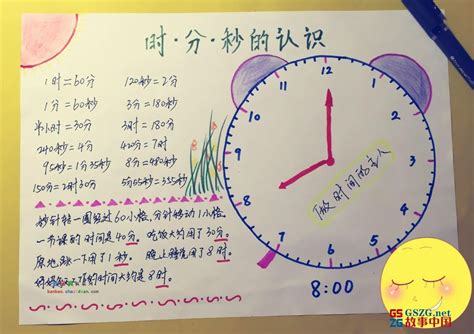 时·分·秒的认识
1时=60分 120秒=2分
1分=60秒 3分=180秒
半小时=30分 3时=180分
240秒=4分 420秒=7分
95秒=1分35秒 8分=480秒
150分=2时30分 5分55秒=355秒
秒针转一圈经过60小格,分针转动1小格。
一节课的时间是40分。吃饭大约用了30分。
原地跳一下用了1秒。晚上睡觉用了8时。
的时间大约是8时。
12
1
2
3
4
5
6
7
8
9
10
11
做时间的主人
8:00
GSZG.net
故事中国